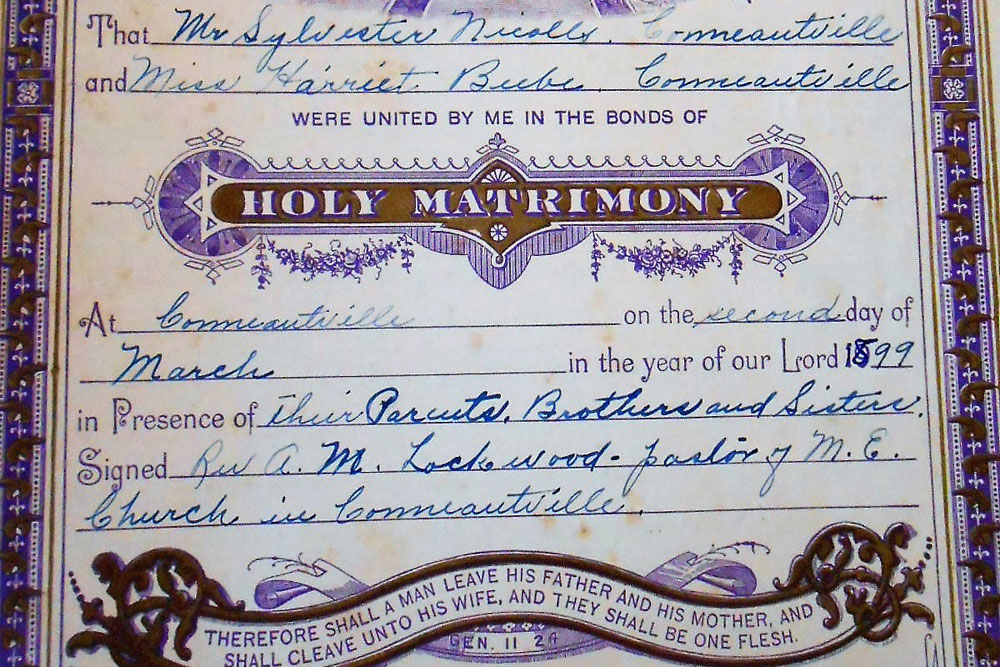 That Mr Sylvester Nicolls. Conneautville
and Miss Harriet Beebe. Conneautville
WERE UNITED BY ME IN THE BONDS OF
HOLY MATRIMONY
At Conneautville on the second day of
March in the year of our Lord 1899
in Presence of Their Parents, Brothers and Sisters.
Signed Rev A. M. Lockwood - pastor of M. E.
Church in Conneautville.
THEREFORE SHALL A MAN LEAVE HIS FATHER AND HIS MOTHER, AND
SHALL CLEAVE UNTO HIS WIFE, AND THEY SHALL BE ONE FLESH.
GEN. II 24